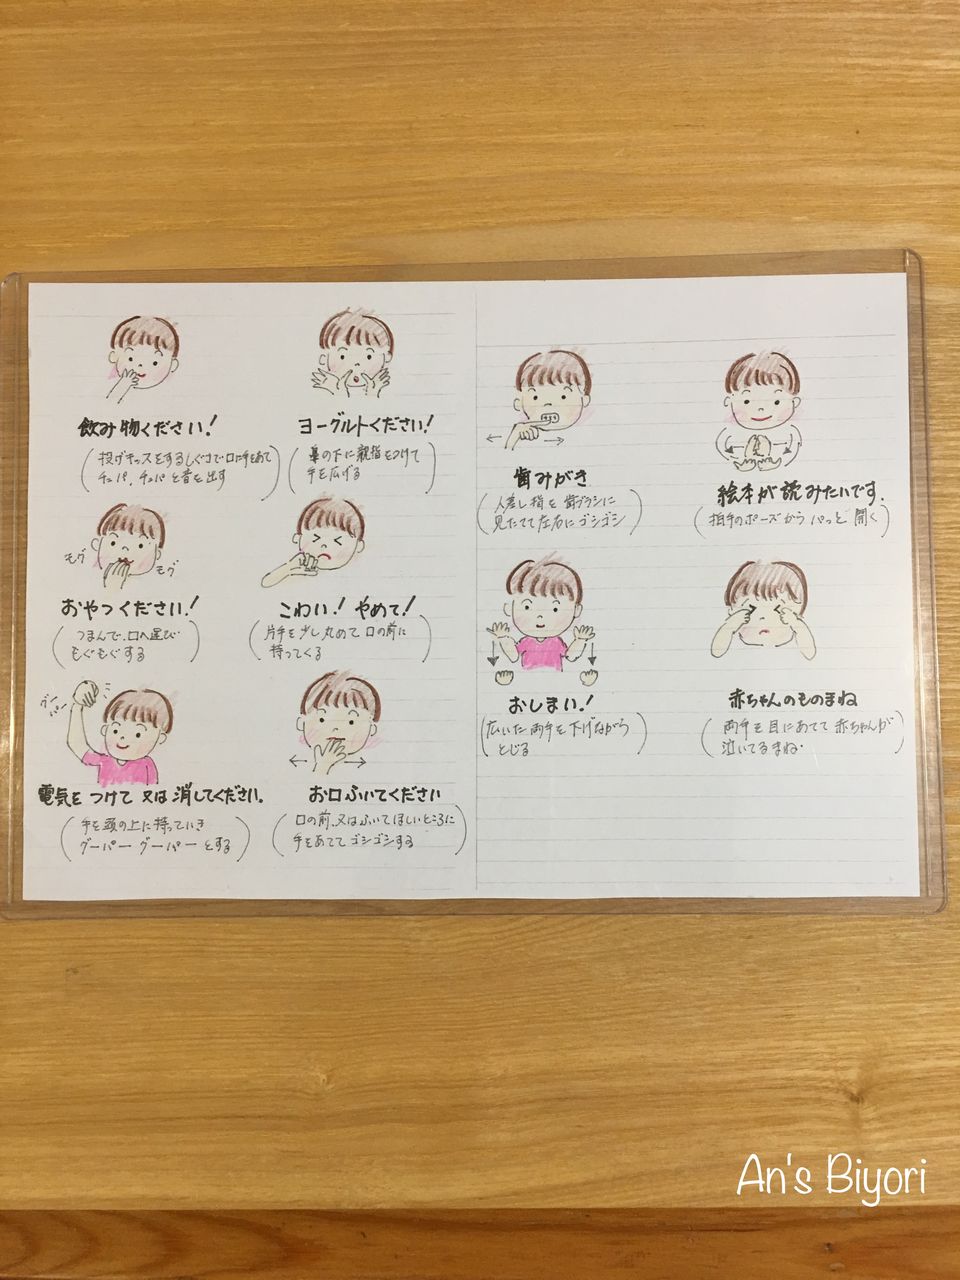 飲み物ください!
(投げキッスをするしぐさで口に手をあて
チュパ、チュパと音を出す)
ヨーグルトください!
(鼻の下に親指をつけて
手を広げる)
モグ
モグ
おやつください!
(つまんで、口へ運び
もぐもぐする)
こわい!やめて!
(片手を少し丸めて口の前に
持ってくる)
グー
パー
電気をつけて又は消してください。
(手を頭の上に持っていき
グーパーグーパーとする)
お口ふいてください
(口の前、又はふいてほしいところに
手をあててゴシゴシする)
歯みがき
(人差し指を歯ブラシに
見たてて左右にゴシゴシ)
絵本が読みたいです.
(拍手のポーズからパっと開く)
おしまい!
(広いた両手を下げながら
とじる)
赤ちゃんのものまね
(両手を目にあてて赤ちゃんが
泣いてるまね.)
An's Biyori